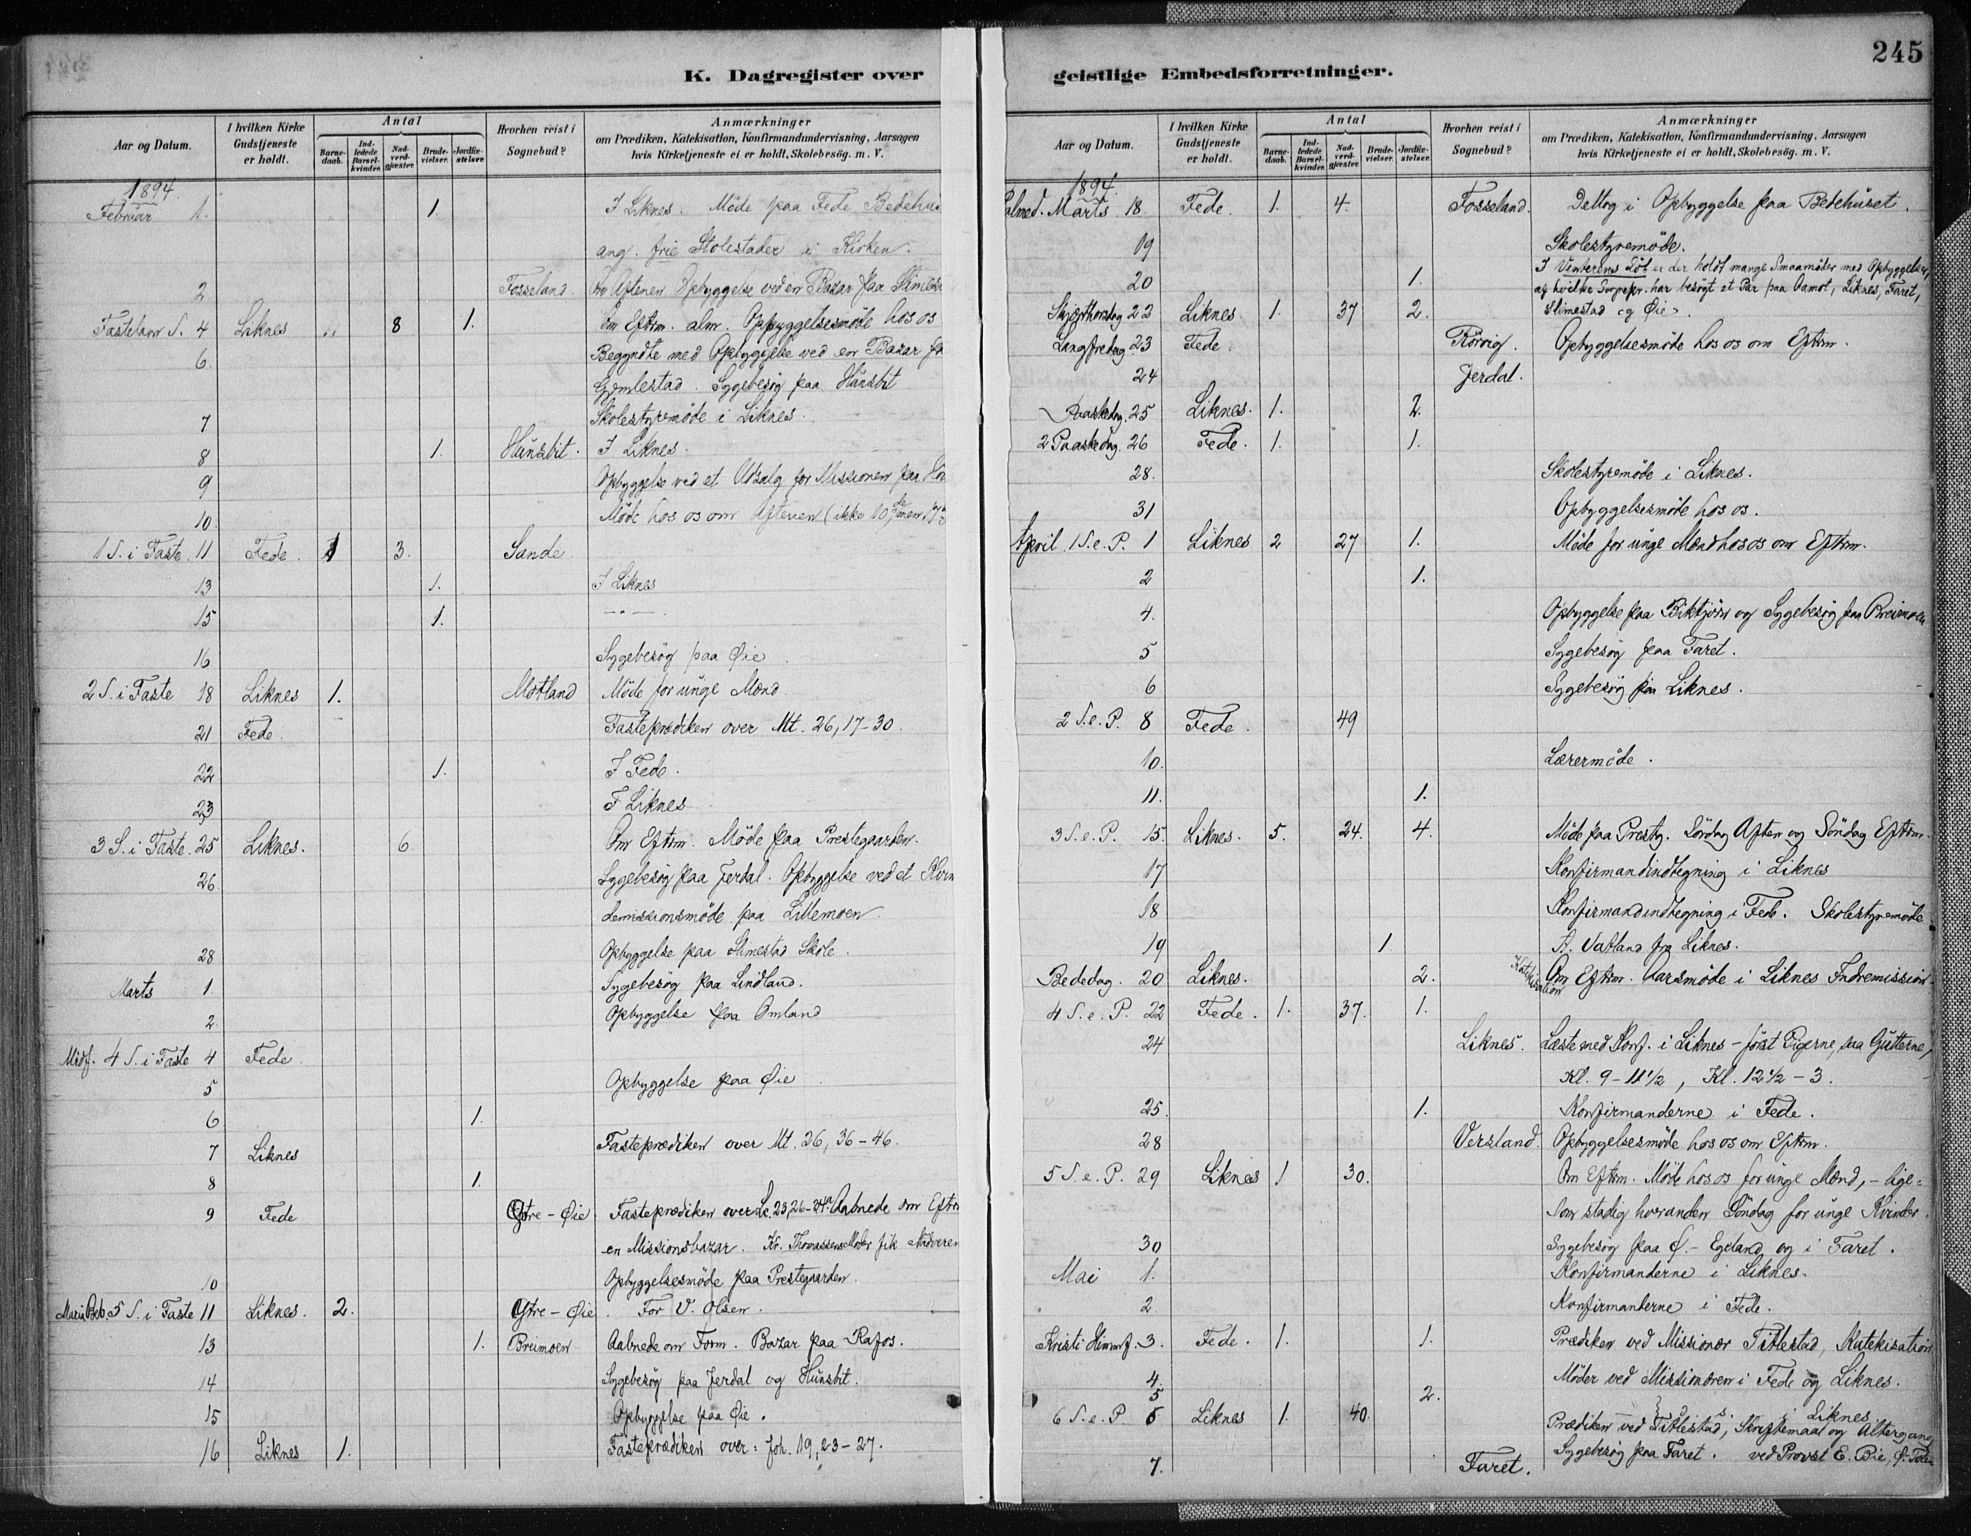 245
K. Dagregister over geistlige Embedsforretninger.
Aar og Datum. I hvilken Kirke Gudstjeneste er holdt. Antal Barnedaab. Indledede Barselkvinder. Nadverdgjæster. Brudevielser. Jordfæstelser. Hvorhen reist i Sognebud? Anmærkninger om Prædiken, Katekisation, Konfirmandundervisning, Aarsagen hvis Kirketjeneste ei er holdt, Skolebesög. m. V.
1894
Februar 1. 1. I Liknes. Møde paa Fede Bedehus
ang. frie Stolestader i Kirken.
2 Fosseland. Om Aftenen Opbyggelse ved en Bazar paa
Fastelavn S. 4 Liknes 8 1. Om Eftrm. alm. Opbyggelsesmøde hos os
6. Begyndte med Opbyggelse ved en Bazar
Gjemlestad. Sygebesøg paa Hunsbit
7 Skolestyremøde i Liknes.
8 1. Hunsbit. I Liknes.
9 Opbyggelse ved et Udsalg for Missionen paa
10 Møde hos os om Aftenen (ikke 10de, men
1 S. i Faste. 11 Fede. 1 3. Sande
13 1. I Liknes
15 1. —"—
16 Sygebesøg paa Øie
2 S. i Faste 18 Liknes 1. Motland Møde for unge Mænd.
21 Fede. Fasteprædiken over Mt. 26, 17-30.
22 1. I Fede.
23 I Liknes
3 S. i Faste. 25 Liknes. 6. Om Eftrm. Møde paa Prestegaarden.
26 Sygebesøg paa Jerdal. Opbyggelse ved et Kvin
demissionsmøde paa Lillemoen.
28 Opbyggelse paa Slimestad Skole.
Marts 1 Sygebesøg paa Lindland.
2 Opbyggelse paa Omland
Midf. 4 S. i Faste 4 Fede
5 Opbyggelse paa Øie
6 1.
7 Liknes Fasteprædiken over Mt. 26, 36-46.
8 1.
9 Fede Øvre-Øie. Fasteprædiken over Lc. 23, 26- Aabnede om Eftrm
en Missionsbazar. Kr. Thomassens Moder fik Nadveren
10 Opbyggelsesmøde paa Prestegaarden.
Mariæ Beb. 5 S. i Faste 11 Liknes. 2. Øvre-Øie. For V. Olsen.
13 1. Breimoen Aabnede om Form. Bazar paa Rafos.
14 Sygebesøg paa Jerdal og Hunsbit.
15 Opbyggelse paa Øie.
16 Liknes 1. Fasteprædiken over: Joh. 19, 23-27.
Aar og Datum. I hvilken Kirke Gudstjeneste er holdt. Antal Barnedaab. Indledede Barselkvinder. Nadverdgjæster. Brudevielser. Jordfæstelser. Hvorhen reist i Sognebud? Anmærkninger om Prædiken, Katekisation, Konfirmandundervisning, Aarsagen hvis Kirketjeneste ei er holdt, Skolebesög. m. V.
1894.
Palmed. Marts 18 Fede. 1. 4. Fosseland. Deltog i Opbyggelse paa Bedehuset.
19 Skolestyremøde.
20 1. I Vinterens Løb er der holdt mange Smaamøder med Opbyggelse,
af hvilke Sognepr. har besøgt et Par paa Aamot, Liknes, Faret,
Skjærthorsdag 22 Liknes 1. 37 2. Slimestad og Øie.
Langfredag 23 Fede. Rørvig. Opbyggelsesmøde hos os om Eftrm.
24 Jerdal.
Paaskedag. 25 Liknes. 1. 2.
2 Paaskedag. 26 Fede. 1. 1.
28. Skolestyremøde i Liknes.
31 Opbyggelsesmøde hos os.
April 1 S. e. P. 1 Liknes 2 27 1. Møde for unge Mænd hos os om Eftrm.
2 1.
4. Opbyggelse paa Birktjørn og Sygebesøg paa Breimoen
5 Sygebesøg paa Faret.
6 Sygebesøg paa Liknes.
2 S. e. P. 8 Fede. 49
10. Lærermøde.
11. 1.
3 S. e. P. 15. Liknes. 5. 24. 4. Møde paa Prestg. Lørdag Aften og Søndag Eftrm.
17 Konfirmandindtegning i Liknes
18 Konfirmandindtegning i Fede. Skolestyremøde.
19 1 A. Vatland fra Liknes.
Bededag. 20 Liknes. 2. Katekisation Om Eftrm. Aarsmøde i Liknes Indremission.
4 S. e. P. 22 Fede. 1. 37. 1.
24 Liknes. Læste med Konf. i Liknes - først Pigerne, saa Gutterne,
Kl. 9-11½, Kl. 12½-3.
25. 1. Konfirmanderne i Fede.
28 Versland. Opbyggelsesmøde hos os om Eftrm.
5 S. e. P. 29 Liknes 1 30. Om Eftrm. Møde hos os for unge Mænd, - lige=
som stadig hveranden Søndag for unge Kvinder.
30 Sygebesøg paa Ø.-Egeland og i Faret.
Mai 1. Konfirmanderne i Liknes.
2 Konfirmanterne i Fede.
Kristi Himmf. 3. Fede. 1. 1. Prædiken ved Missionær Tittlestad, Katekisation
4. Møder ved Missionæren i Fede og Liknes.
5 2. Liknes
6 S. e. P. 6 Liknes 1. 40. Prædiken ved Tittlestad, Skriftemaal og Altergang
7. Faret. Sygebesøg paa Faret. ved Provst E. Bie,